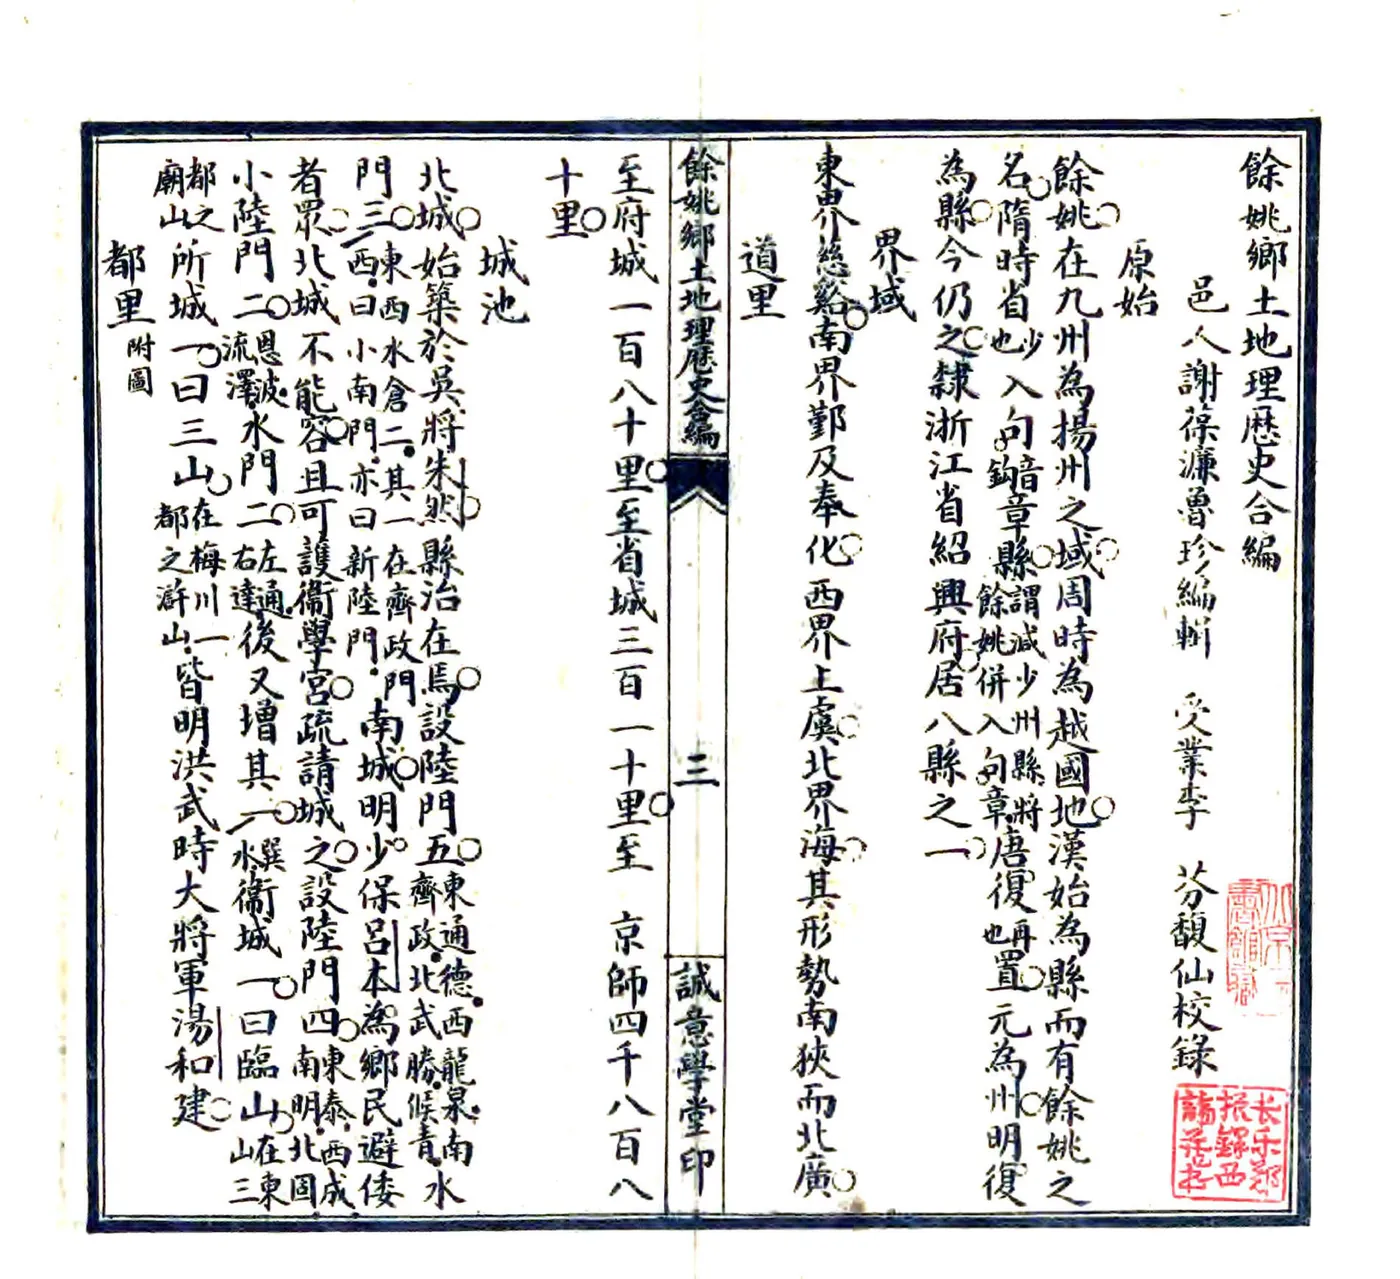 餘姚鄉土地理歷史合編
邑人謝葆濂魯珍編輯　受業李　芬馥仙校錄
原始
餘姚在九州為揚州之域周時為越國地漢始為縣而有餘姚之
名隋時省少也入句音鉤章縣謂減少州縣將餘姚併入句章唐復再也置元為州明復
為縣今仍之隸浙江省紹興府居八縣之一
界域
東界慈谿南界鄞及奉化西界上虞北界海其形勢南狹而北廣
道里
餘姚鄉土地理歷史合編　三　誠意學堂印
至府城一百八十里至省城三百一十里至　京師四千八百八
十里
城池
北城始築於吳將朱然縣治在焉設陸門五東通德西龍泉南齊政北武勝候青水
門三東西水倉二其一在齊政門西曰小南門亦曰新陸門南城明少保呂本為鄉民避倭
者眾北城不能容且可護衛學宮疏請城之設陸門四東泰西成南明北固
小陸門二恩波流澤水門二左通右達後又增其一巽水衛城一曰臨山在東山三
都之廟山所城一曰三山在梅川一都之滸山皆明洪武時大將軍湯和建
都里附圖
长乐郑振鐸西諦藏书